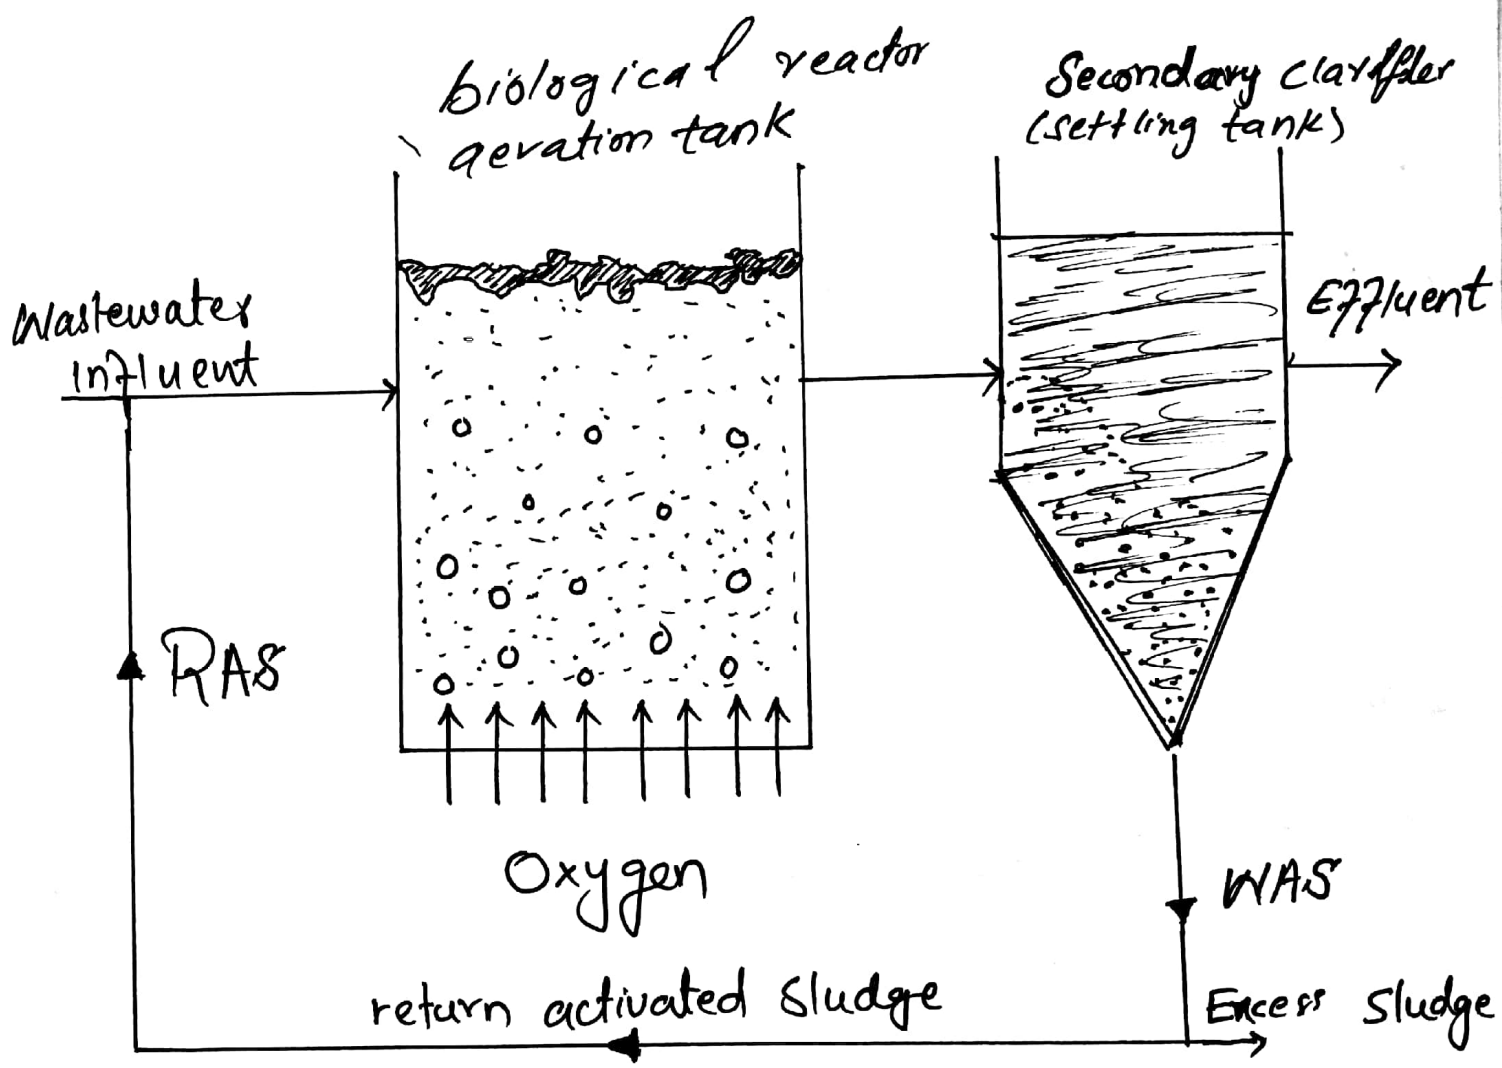 biological reactor
aeration tank
Secondary clarifier
(settling tank)
Wastewater
influent
Effluent
RAS
Oxygen
WAS
return activated sludge
Excess sludge